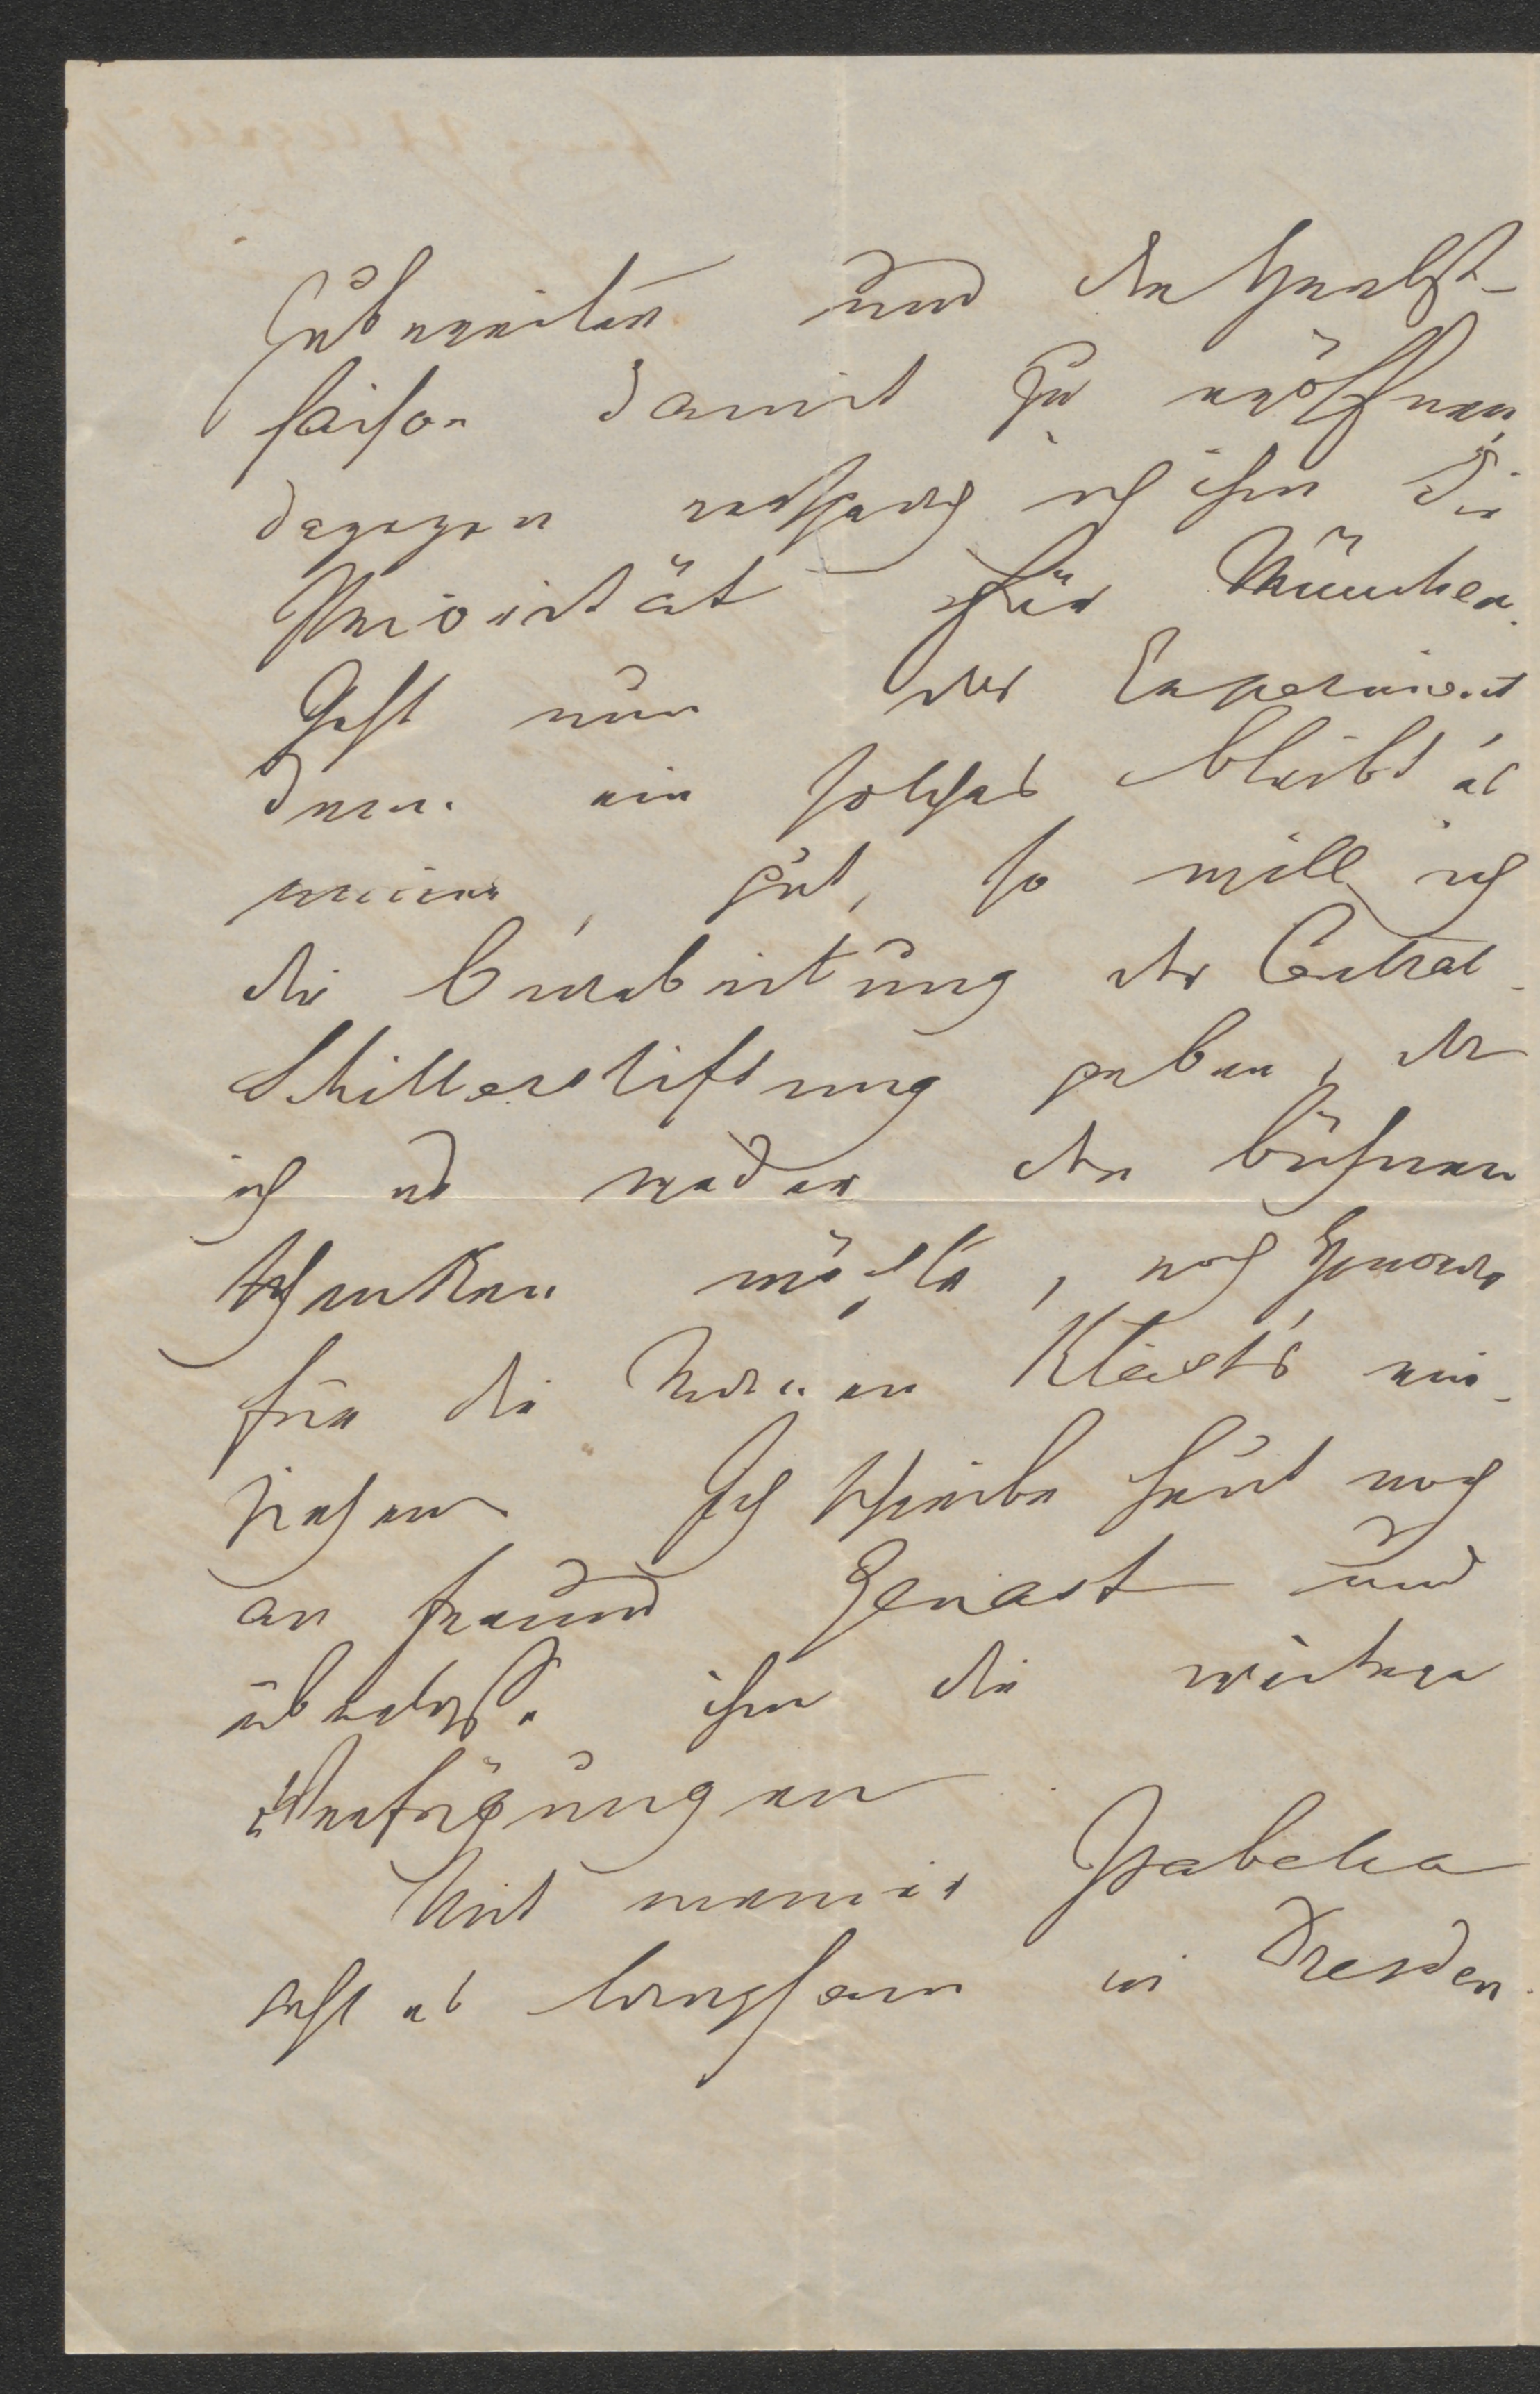 vorbereiten und die Herbst-
saison damit zu eröffnen,
dagegen versprach ich ihm die
Priorität für München.
Geht nun das Experiment
denn ein solches bleibt es
immer, gut, so will ich
die Bearbeitung der Central-
Schillerstiftung geben, da
ich es weder den Bühnen
schenken möchte, noch Honorar
für die Manen Kleist's ein-
ziehen. Ich schreibe heut noch
an Freund Genast und
überlasse ihm die weitere
Verfügungen
Mit meiner Isabella
geht es langsam in Dresden.